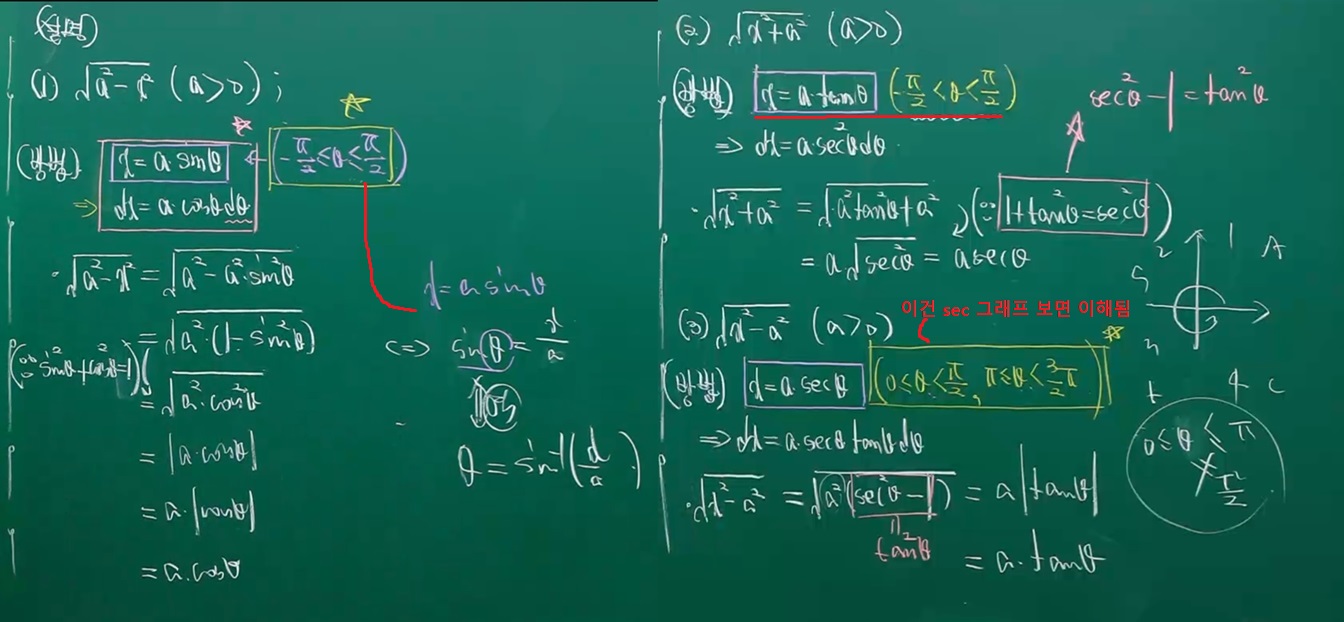 (설명)
(1) √(a²-x²) (a>0) ;
(방법) x = a·sinθ ← (-π/2 ≤ θ ≤ π/2)
⇒ dx = a·cosθ dθ
· √(a²-x²) = √(a²-a²·sin²θ)
= √(a²·(1-sin²θ))
(∵ sin²θ+cos²θ=1)
= √(a²·cos²θ)
= |a·cosθ|
= a·|cosθ|
= a·cosθ
x = a sinθ
⇔ sinθ = x/a
θ = sin⁻¹(x/a)
(2) √(x²+a²) (a>0)
(방법) x = a·tanθ (-π/2 < θ < π/2)
sec²θ - 1 = tan²θ
⇒ dx = a·sec²θ dθ
· √(x²+a²) = √(a²tan²θ+a²) (∵ 1+tan²θ = sec²θ)
= a√(sec²θ) = a secθ
이건 sec 그래프 보면 이해됨
(3) √(x²-a²) (a>0)
(방법) x = a·secθ (0≤θ<π/2, π≤θ<3/2 π)
⇒ dx = a·secθ tanθ dθ
· √(x²-a²) = √(a²(sec²θ-1)) = a|tanθ|
tan²θ
= a·tanθ
1 A
2 S
3
t
4 C
0≤θ≤π
≠ π/2